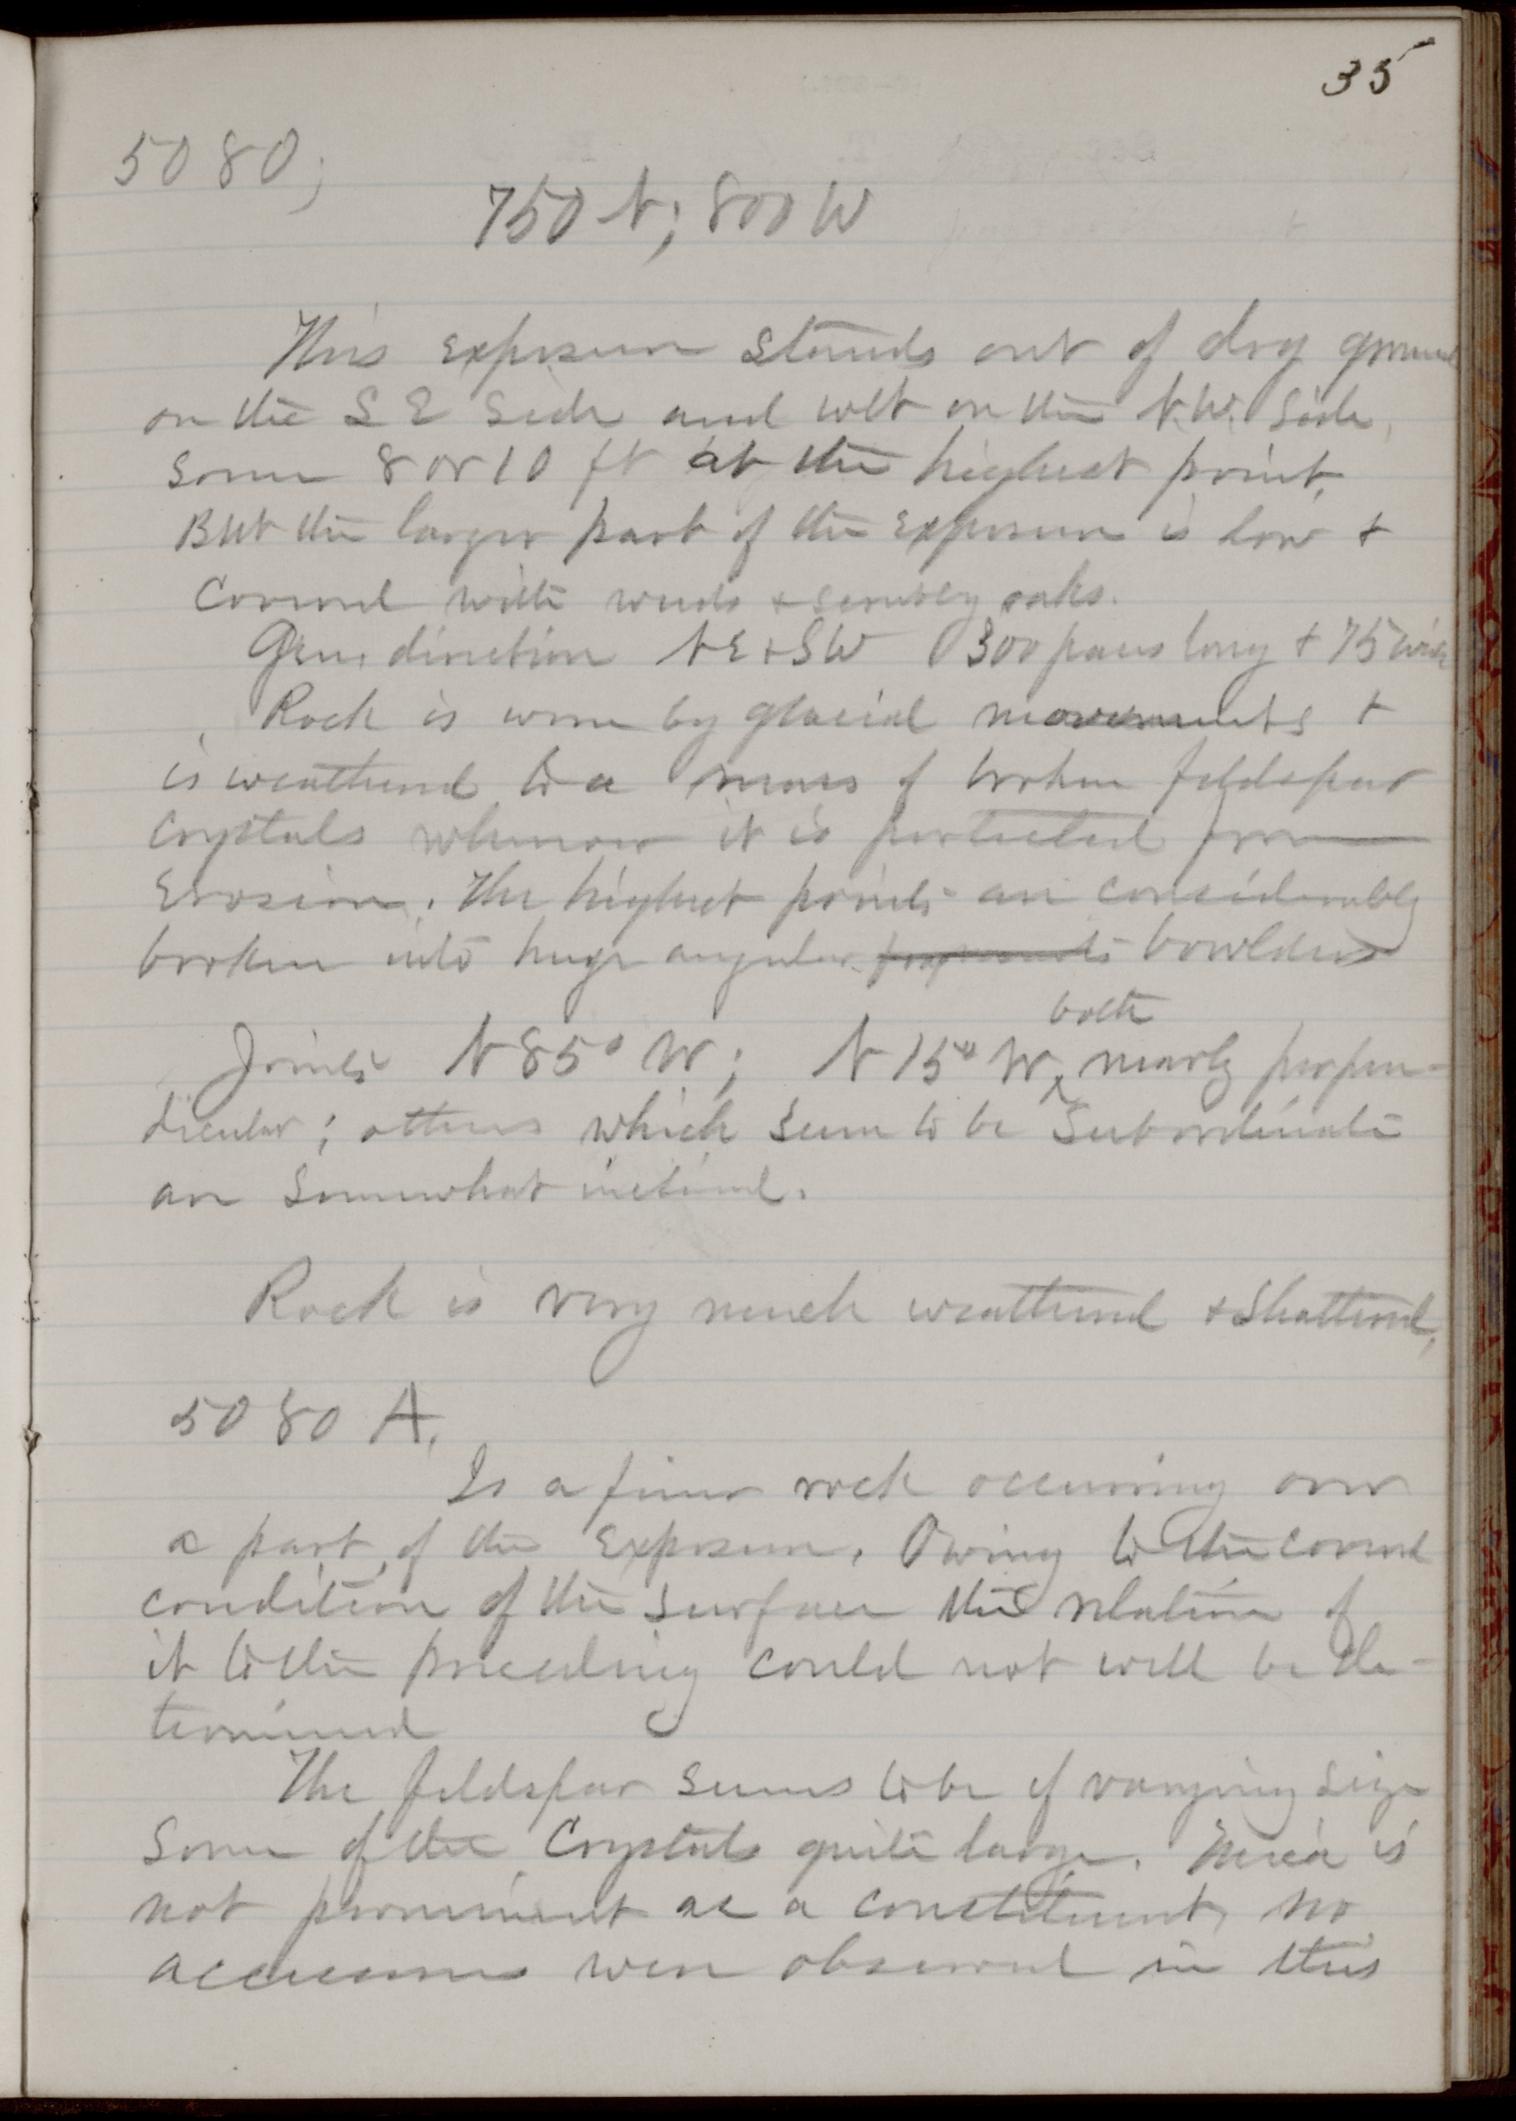 35
5080;
750 N; 800 W
This exposure stands out of dry ground
on the S E side and wet on the N.W. side,
some 8 or 10 ft at the highest point.
But the larger part of the exposure is low +
covered with weeds + scrubby oaks.
Gen. direction N E + S W 300 paces long + 75 wide
Rock is worn by glacial movements +
is weathered to a mass of broken feldspar
crystals wherever it is protected from
Erosion. The highest points are considerably
broken into huge angular fragments bowlders
Joints N 85° W; N 15° W, both nearly perpen-
dicular; others which seem to be subordinate
are somewhat inclined.
Rock is very much weathered + shattered,
5080 A.
Is a finer rock occurring over
a part of the exposure. Owing to the covered
condition of the surface the relation of
it to the preceding could not well be de-
termined
The feldspar seems to be of varying size
some of the crystals quite large. Mica is
not prominent as a constituent, no
accessories were observed in this